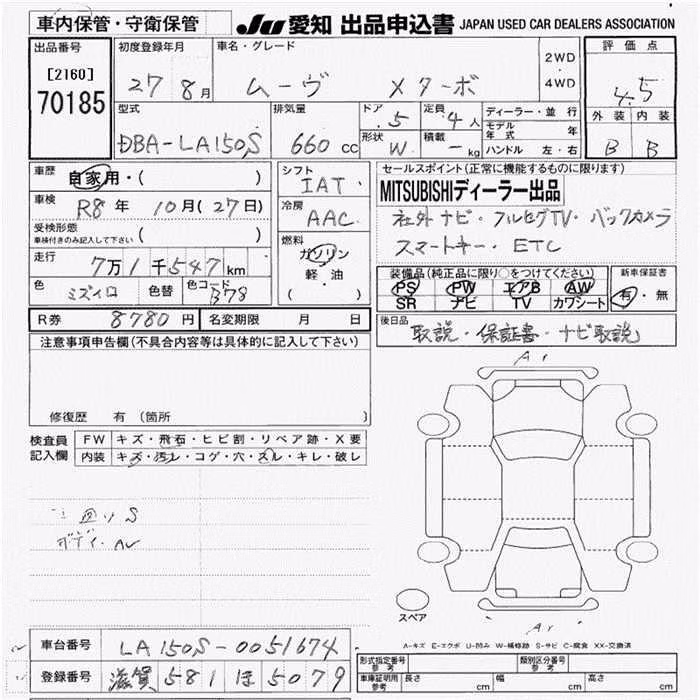 車内保管・守衛保管
JU 愛知 出品申込書 JAPAN USED CAR DEALERS ASSOCIATION
出品番号
[2160]
70185
初度登録年月
27 8月
車名・グレード
ムーヴ Xターボ
2WD
・
4WD
評価点
4.5
外装 内装
B B
型式
DBA-LA150S
排気量
660 cc
ドア 5
形状 W
定員 4人
積載 - kg
ディーラー・並行
モデル年式 年
ハンドル 左・右
車歴
自家用・( )
車検 R8年 10月(27日)
受検形態
車検付きのみ記入して下さい ( )
走行
7万1千547km
色 ミズイロ 色替 色コード B78
シフト
IAT
冷房
AAC
燃料
ガソリン
軽・油
( )
セールスポイント(正常に機能するものに限ります)
MITSUBISHIディーラー出品
社外ナビ・フルセグTV・バックカメラ
スマートキー・ETC
装備品(純正品に限り○をつけてください)
PS PW エアB AW
SR ナビ TV カワシート
新車保証書
有・無
R券 8780円 名変期限 月 日
後日品
取説・保証書・ナビ取説
注意事項申告欄(不具合内容等は具体的に記入して下さい)
修復歴 有(箇所 )
検査員
記入欄
FW キズ・飛石・ヒビ割・リペア跡・X要
内装 キズ・汚レ・コゲ・穴・スレ・キレ・破レ
S
ボディ・AU
A1
スペア
A1
A-キズ E-エクボ U-凹み W-補修跡 S-サビ C-腐食 XX-交換済
車台番号 LA150S-0051674
登録番号 滋賀 581 ほ 5079
形式指定番号
参考
類別区分番号
参考
車庫証明用
参考
長さ cm 幅 cm 高さ cm